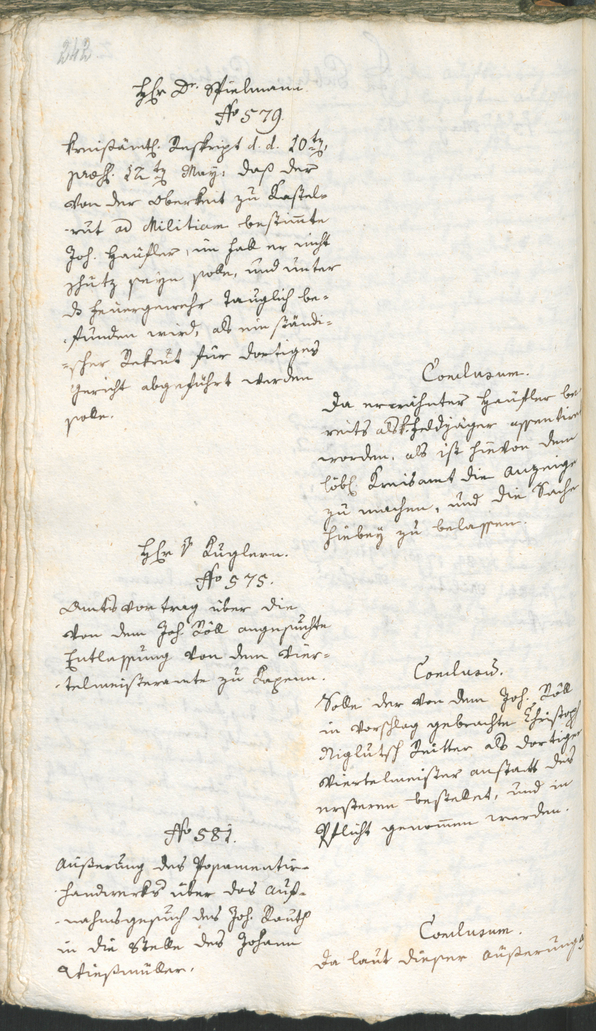 242
HHr Dr. Spielmann.
No 579.
Kreisämtl. Reskript d. d. 10ten,
praes. 12ten May: daß der
von der Oberkeit zu Kastel-
rut ad Militiam bestimmte
Joh. Häusler, im Fall er nicht
Schütz seyn solle, und unter
dz Feuergewehr tauglich be-
funden wird, als ein ständi-
scher Rekrut für dortiges
Gericht abgeführt werden
solle.
Conclusum.
Da erwähnter Häusler be-
reits als Feldjäger assentirt
worden, als ist hievon dem
löbl. Kreisamt die Anzeige
zu machen, und die Sache
hiebey zu belassen.
HHr v Kuglern.
No 575.
Amtsvortrag über die
von dem Joh. Röll angesuchte
Entlassung von dem Vier-
telmeisteramte zu
Conclusum.
Solle der von dem Joh. Röll
in Vorschlag gebrachte Christoph
Niglutsch Reitter als dortiger
Viertelmeister anstatt des
ersteren bestellet, und in
Pflicht genommen werden.
No 581.
Äußerung des Posamentir-
handwerks über das Auf-
nahmsgesuch des Joh. Rauch
in die Stelle des Johann
Wießmüller.
Conclusum.
Da laut dieser Äußerung